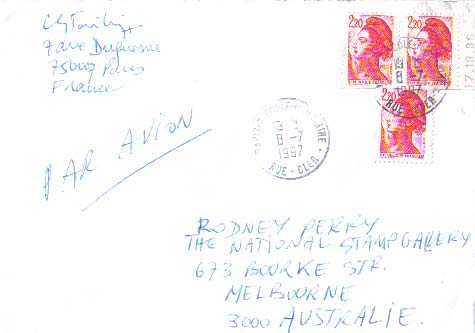 7 ave Duquesne
75007 Paris
France
PAR AVION
2,20
2,20
2,20
8-7
1997
RUE-CLER
8-7
1997
RUE-CLER
17.10.86
RODNEY PERRY
THE NATIONAL STAMP GALLERY
673 BOURKE STR.
MELBOURNE
3000 AUSTRALIE.